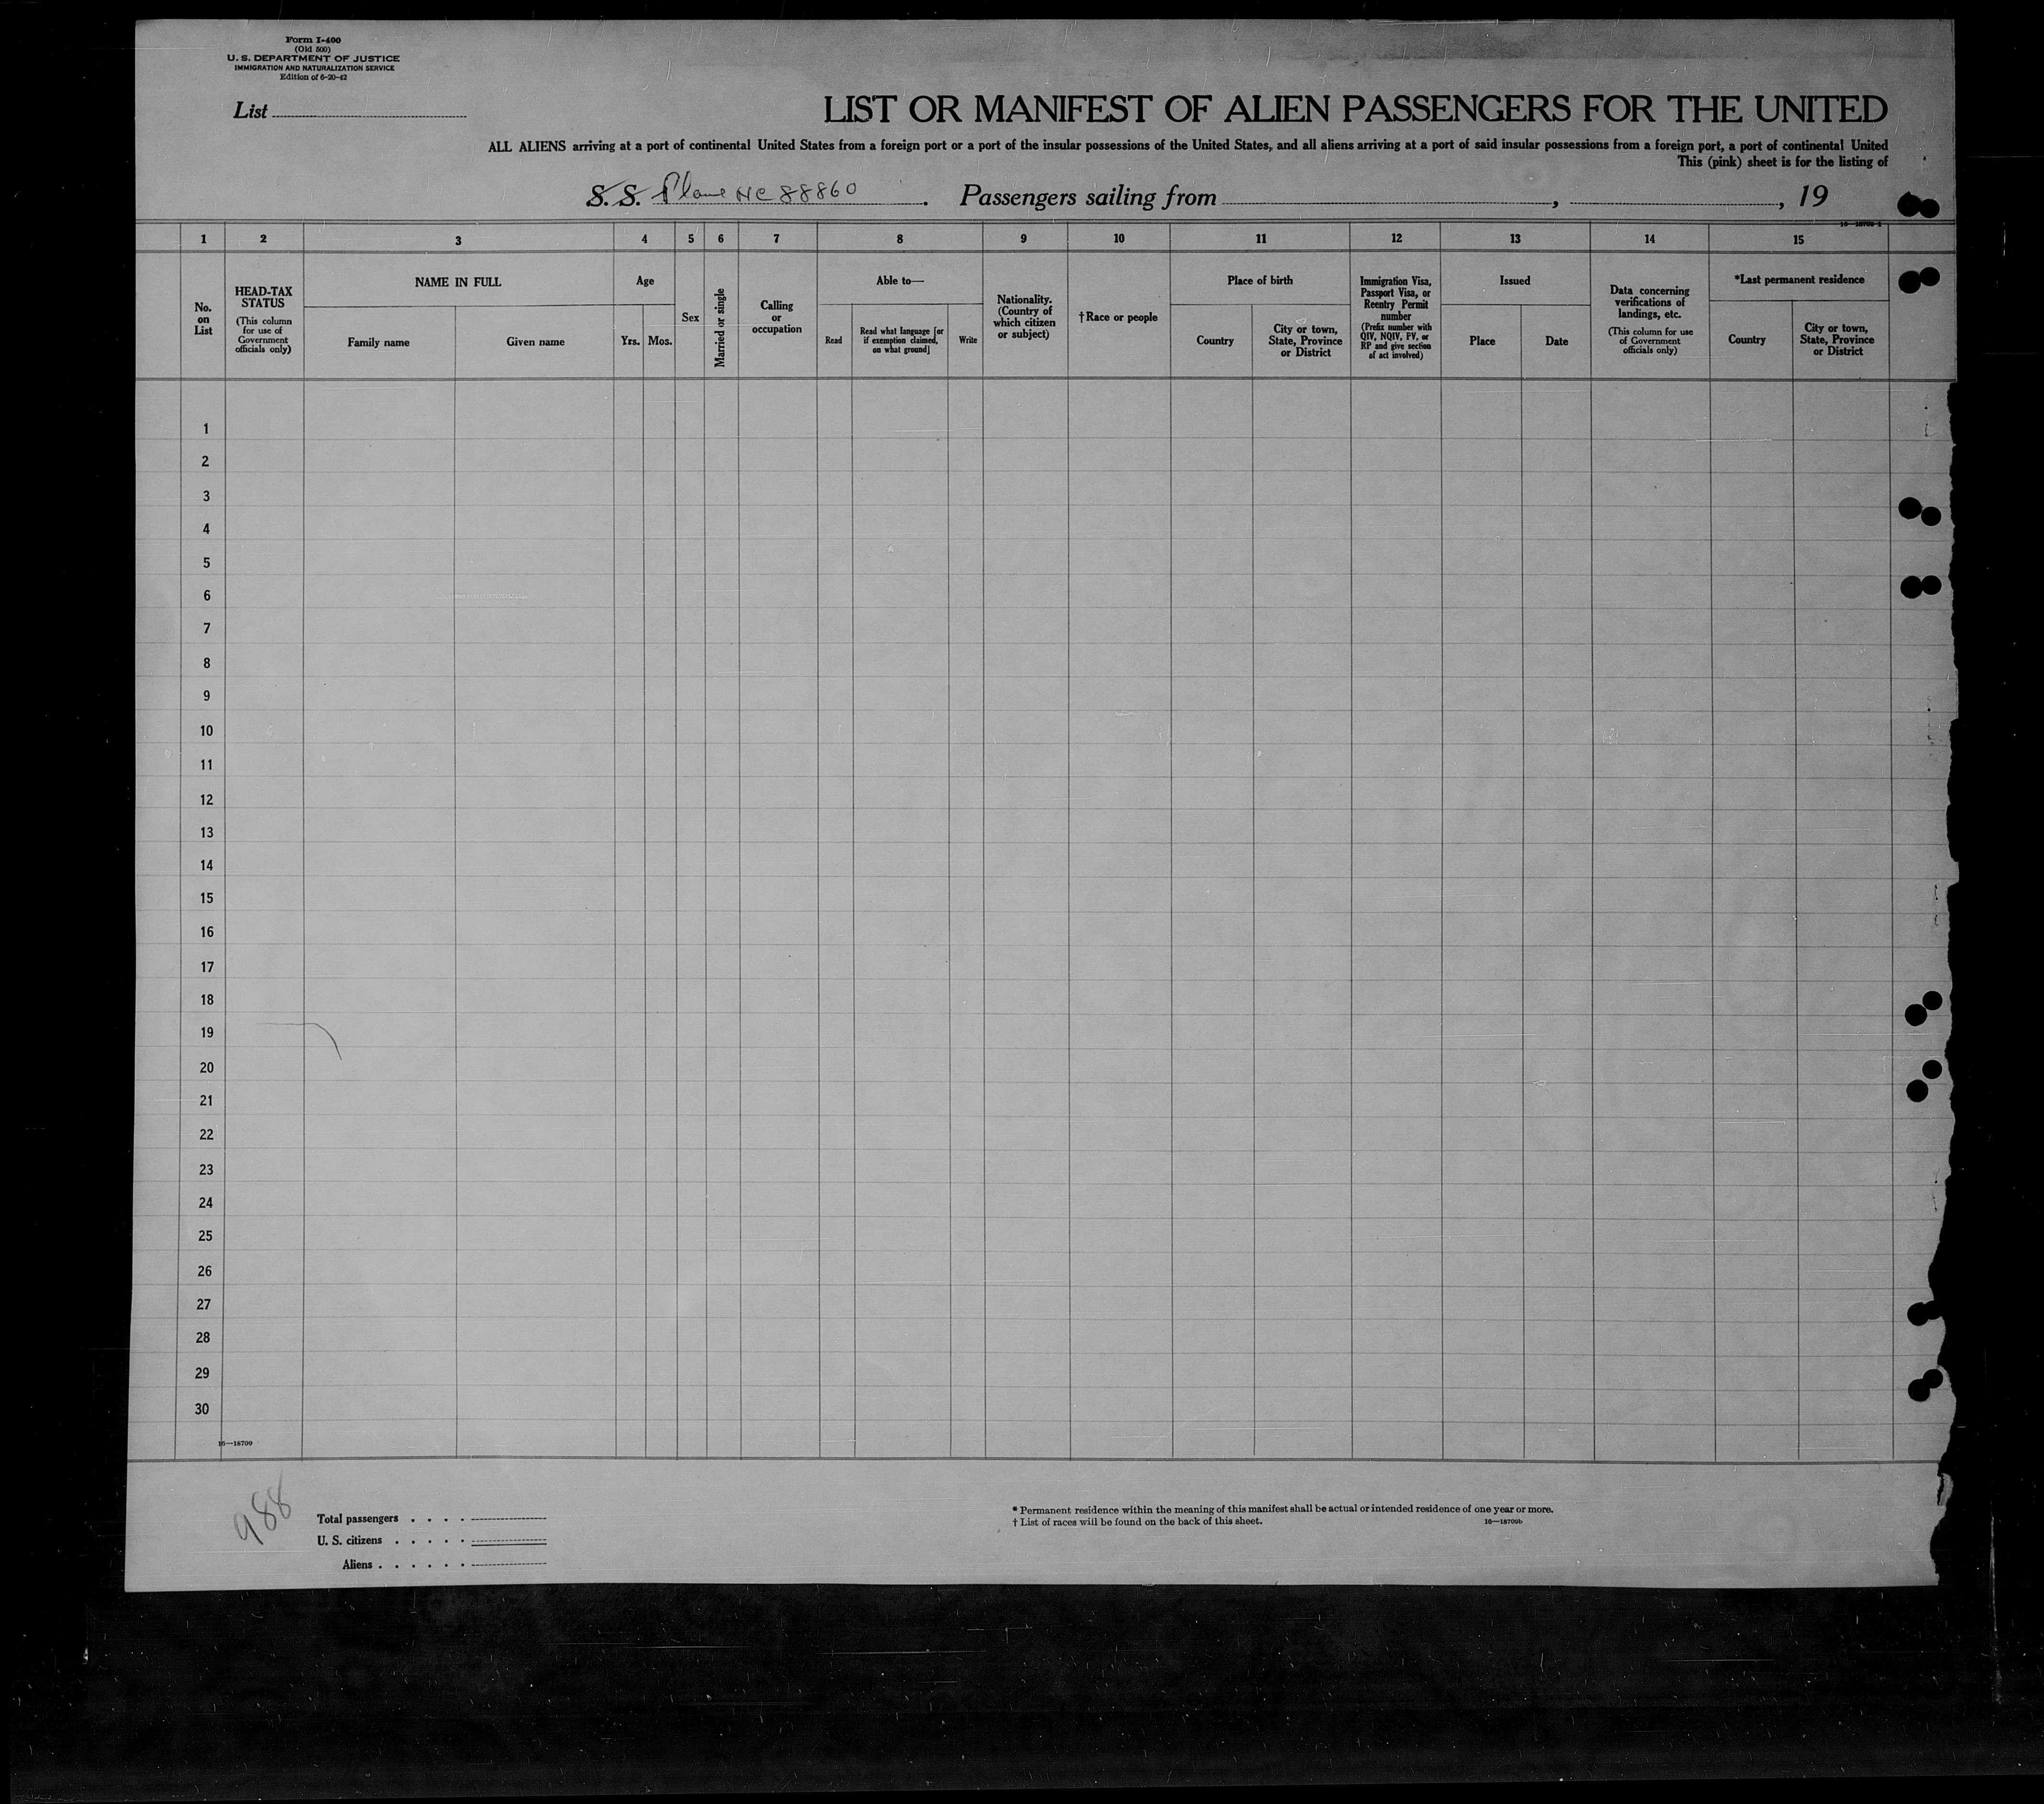 Form I-400
(Old 500)
U. S. DEPARTMENT OF JUSTICE
IMMIGRATION AND NATURALIZATION SERVICE
Edition of 6-20-42
List
LIST OR MANIFEST OF ALIEN PASSENGERS FOR THE UNITED
ALL ALIENS arriving at a port of continental United States from a foreign port or a port of the insular possessions of the United States, and all aliens arriving at a port of said insular possessions from a foreign port, a port of continental United
This (pink) sheet is for the listing of
S. S. Plane NC 88860. Passengers sailing from , , 19
1 2 3 4 5 6 7 8 9 10 11 12 13 14 15
No. on List
HEAD-TAX STATUS
(This column for use of Government officials only)
NAME IN FULL
Family name
Given name
Age
Yrs.
Mos.
Sex
Married or single
Calling or occupation
Able to—
Read
Read what language [or if exemption claimed, on what ground]
Write
Nationality. (Country of which citizen or subject)
†Race or people
Place of birth
Country
City or town, State, Province or District
Immigration Visa, Passport Visa, or Reentry Permit number
(Prefix number with QIV, NQIV, PV, or RP and give section of act involved)
Issued
Place
Date
Data concerning verifications of landings, etc.
(This column for use of Government officials only)
*Last permanent residence
Country
City or town, State, Province or District
1
2
3
4
5
6
7
8
9
10
11
12
13
14
15
16
17
18
19
20
21
22
23
24
25
26
27
28
29
30
16—18709
988
Total passengers . . . .
U. S. citizens . . . . .
Aliens . . . . . .
* Permanent residence within the meaning of this manifest shall be actual or intended residence of one year or more.
† List of races will be found on the back of this sheet.
16—18709b